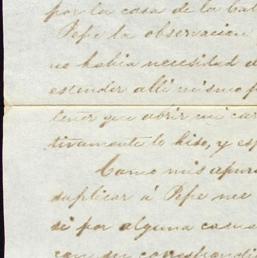 por la casa de la Cal
Pepe la observacion
no habia necesidad d
estender alli mismo p
tener que abrir mi car
tivamente lo hiso, y es
Como mis apura
suplicar á Pepe me
si por alguna casua